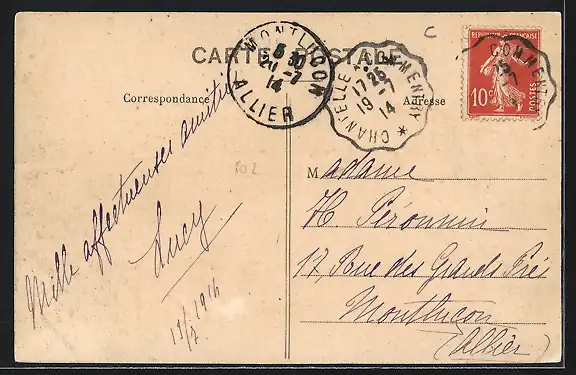 CARTE POSTALE
Correspondance
Adresse
C
MONTLUÇON
5 30
20 -7
14
ALLIER
CHANTELLE A COMMENTRY
25
17 -7
19 14
REPUBLIQUE FRANÇAISE
10c
POSTES
COMMENTRY
Mille affectueuses amitiés
Lucy
19/7 1914
802
Madame
H Péronnin
17, Rue des Grands Prés
Montluçon
(Allier)